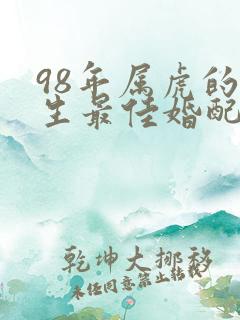 98年属虎的
生最佳婚配
乾坤大挪移
未经同意禁止转载